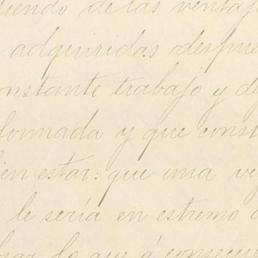 diendo de las ventaj
adquiridas despue
onstante trabajo y de
donnada y que const
ien estar: que una ve
le sería en estremo
que á consecuen